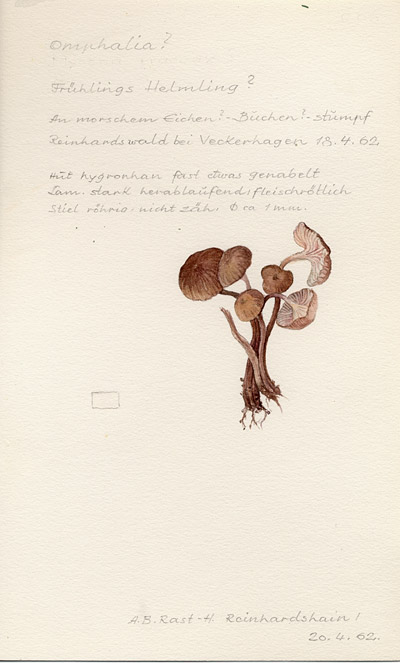 Omphalia?
Frühlings Helmling?
An morschem Eichen?-Buchen?-stumpf
Reinhardswald bei Veckerhagen 18.4.62
Hut hygrophan fast etwas genabelt
Lam. stark herablaufend, fleischrötlich
Stiel röhrig, nicht zäh, Φ ca 1 mm.
A.B. Rast-H. Reinhardshain!
20.4.62.